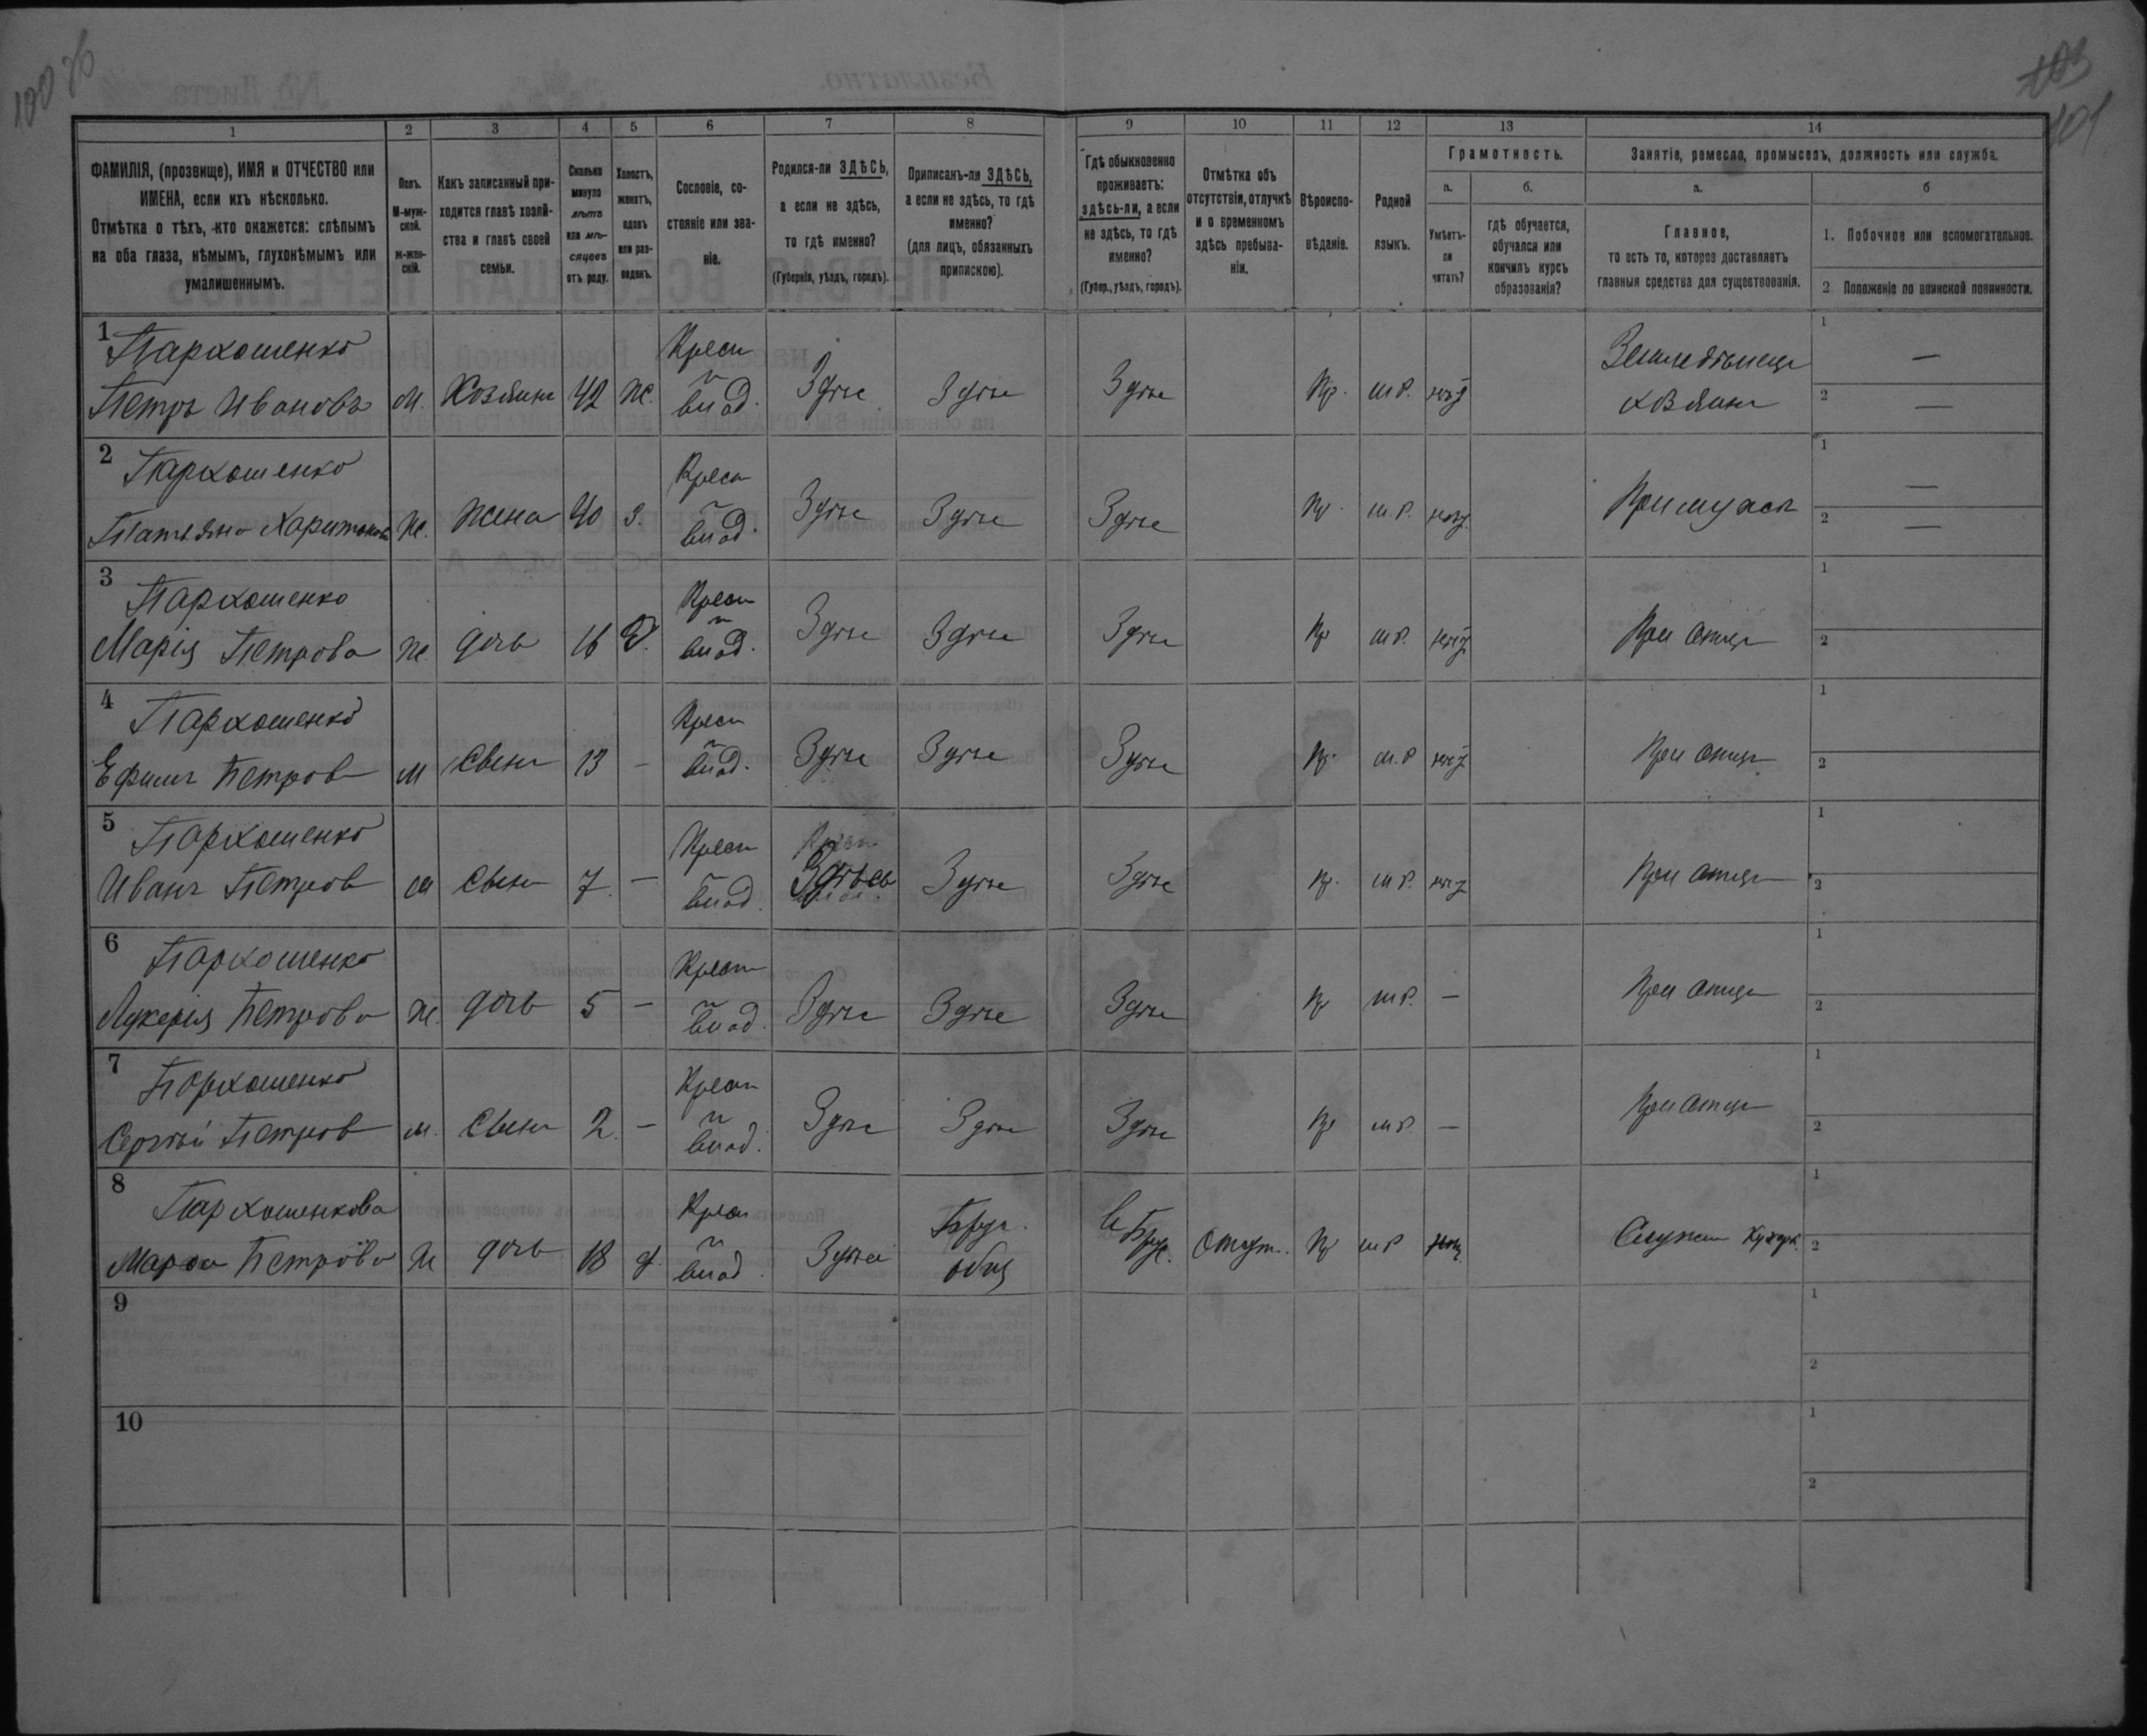 100 об
103
101
1 2 3 4 5 6 7 8 9 10 11 12 13 14
ФАМИЛІЯ, (прозвище), ИМЯ и ОТЧЕСТВО или
ИМЕНА, если ихъ нѣсколько.
Отмѣтка о тѣхъ, кто окажется: слѣпымъ
на оба глаза, нѣмымъ, глухонѣмымъ или
умалишеннымъ.
Полъ.
М-муж-
ской.
ж-жен-
скій.
Какъ записанный при-
ходится главѣ хозяй-
ства и главѣ своей
семьи.
Сколько
минуло
лѣтъ
или мѣ-
сяцевъ
отъ роду.
Холостъ,
женатъ,
вдовъ
или раз-
веденъ.
Сословіе, со-
стояніе или зва-
ніе.
Родился-ли ЗДѢСЬ,
а если не здѣсь,
то гдѣ именно?
(Губернія, уѣздъ, городъ).
Приписанъ-ли ЗДѢСЬ,
а если не здѣсь, то гдѣ
именно?
(для лицъ, обязанныхъ
припискою).
Гдѣ обыкновенно
проживаетъ:
здѣсь-ли, а если
не здѣсь, то гдѣ
именно?
(Губер., уѣздъ, городъ).
Отмѣтка объ
отсутствіи, отлучкѣ
и о временномъ
здѣсь пребыва-
ніи.
Вѣроиспо-
вѣданіе.
Родной
языкъ.
Грамотность.
а.
Умѣетъ-
ли
читать?
б.
гдѣ обучается,
обучался или
кончилъ курсъ
образованія?
Занятіе, ремесло, промыселъ, должность или служба.
а.
Главное,
то есть то, которое доставляетъ
главныя средства для существованія.
б
1. Побочное или вспомогательное.
2 Положеніе по воинской повинности.
1 Пархоменко Крест 1 —
Петръ Ивановъ М. Хозяинъ 42 ж. влад. Здѣсь Здѣсь Здѣсь Пр. м.р. Земледѣлецъ
хозяинъ 2 —
2 Пархоменко Крест 1 —
Татьяна Харитонова Ж. Жена 40 з. влад. Здѣсь Здѣсь Здѣсь Пр. м.р. При мужѣ 2 —
3 Пархоменко Крест 1
Марія Петрова Ж. дочь 16 д. влад. Здѣсь Здѣсь Здѣсь Пр м.р. При отцѣ 2
4 Пархоменко Крест 1
Ефимъ Петровъ М Сынъ 13 — влад. Здѣсь Здѣсь Здѣсь Пр. м.р При отцѣ 2
5 Пархоменко Крест 1
Иванъ Петров м Сынъ 7 — влад. Здѣсь Здѣсь Здѣсь Пр. м.р. При отцѣ 2
6 Пархоменко Крест 1
Лукерія Петрова Ж. дочь 5 — влад. Здѣсь Здѣсь Здѣсь Пр м.р. — При отцѣ 2
7 Пархоменко Крест 1
Сергѣй Петров м. Сынъ 2. — влад. Здѣсь Здѣсь Здѣсь Пр м.р. — При отцѣ 2
8 Пархоменкова Крест 1
Марфа Петрова Ж дочь 18 д. влад. Здѣсь Отсут. Пр м.р 2
9 1
2
10 1
2